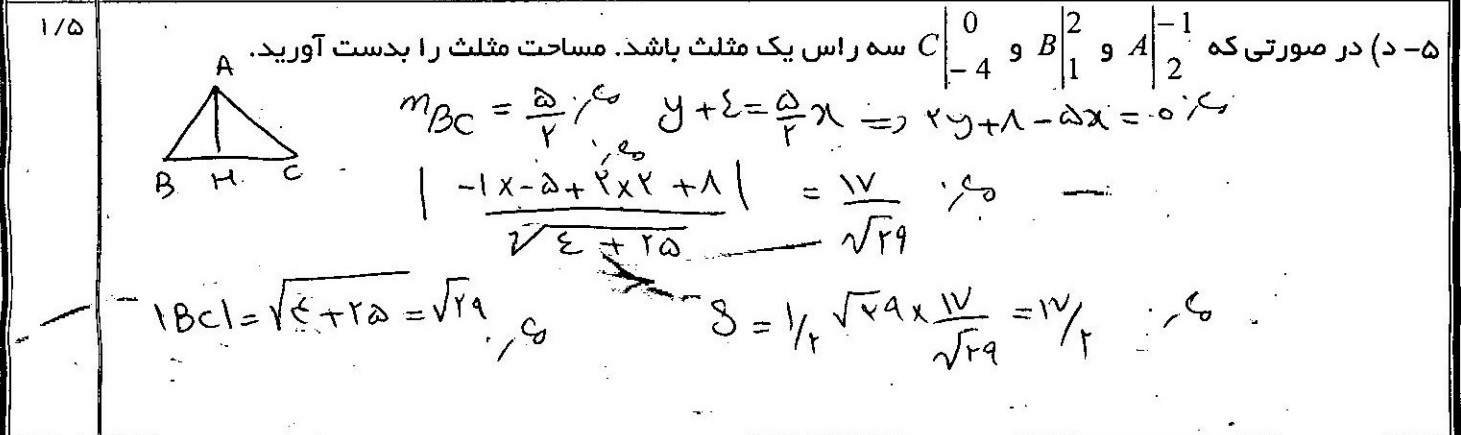 ۱/۵
۵- د) در صورتی که A|-1 2 و B|2 1 و C|0 -4 سه راس یک مثلث باشد. مساحت مثلث را بدست آورید.
A
B H C
mBC = ۵/۲ y+٤=۵/۲x => ۲y+۸-۵x=۰
|-۱x-۵+۲x۲+۸| / √٤+۲۵ = ۱۷/√۲۹
|BC|=√٤+۲۵=√۲۹
S=۱/۲ √۲۹x۱۷/√۲۹=۱۷/۲